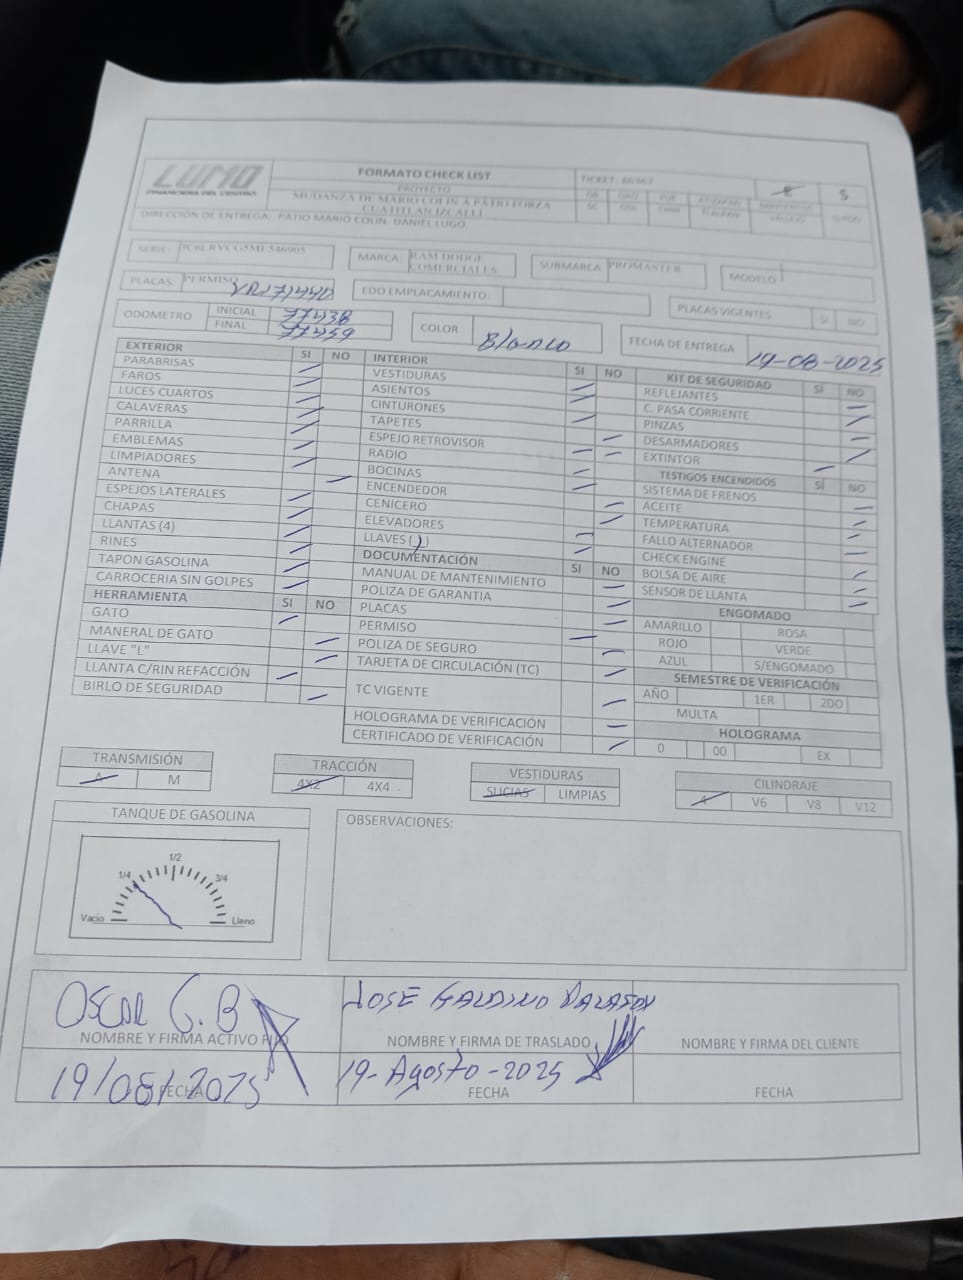 LUMO
FINANCIERA DEL CENTRO
FORMATO CHECK LIST
PROYECTO
MUDANZA DE MARIO COLIN A PATIO FORZA
CUATITLAN IZCALLI
TICKET:
E
S
DIRECCIÓN DE ENTREGA: PATIO MARIO COLIN. DANIEL LUGO
SERIE:
MARCA: RAM DODGE COMERCIALES
SUBMARCA PROMASTER
MODELO
PLACAS: PERMISO
EDO EMPLACAMIENTO
PLACAS VIGENTES SI NO
ODOMETRO INICIAL 77438
FINAL 77459
COLOR Blanco
FECHA DE ENTREGA 19-08-2025
EXTERIOR SI NO
PARABRISAS
FAROS
LUCES CUARTOS
CALAVERAS
PARRILLA
EMBLEMAS
LIMPIADORES
ANTENA
ESPEJOS LATERALES
CHAPAS
LLANTAS (4)
RINES
TAPON GASOLINA
CARROCERIA SIN GOLPES
HERRAMIENTA SI NO
GATO
MANERAL DE GATO
LLAVE "L"
LLANTA C/RIN REFACCIÓN
BIRLO DE SEGURIDAD
INTERIOR SI NO
VESTIDURAS
ASIENTOS
CINTURONES
TAPETES
ESPEJO RETROVISOR
RADIO
BOCINAS
ENCENDEDOR
CENICERO
ELEVADORES
LLAVES (1)
DOCUMENTACIÓN SI NO
MANUAL DE MANTENIMIENTO
POLIZA DE GARANTIA
PLACAS
PERMISO
POLIZA DE SEGURO
TARJETA DE CIRCULACIÓN (TC)
TC VIGENTE
HOLOGRAMA DE VERIFICACIÓN
CERTIFICADO DE VERIFICACIÓN
KIT DE SEGURIDAD SI NO
REFLEJANTES
C. PASA CORRIENTE
PINZAS
DESARMADORES
EXTINTOR
TESTIGOS ENCENDIDOS SI NO
SISTEMA DE FRENOS
ACEITE
TEMPERATURA
FALLO ALTERNADOR
CHECK ENGINE
BOLSA DE AIRE
SENSOR DE LLANTA
ENGOMADO
AMARILLO ROSA
ROJO VERDE
AZUL S/ENGOMADO
SEMESTRE DE VERIFICACIÓN
AÑO 1ER 2DO
MULTA
HOLOGRAMA
0 00 EX
TRANSMISIÓN
A M
TRACCIÓN
4X2 4X4
VESTIDURAS
SUCIAS LIMPIAS
CILINDRAJE
4 V6 V8 V12
TANQUE DE GASOLINA
Vacio 1/4 1/2 3/4 Lleno
OBSERVACIONES:
OSCAR G.B
NOMBRE Y FIRMA ACTIVO FIJO
19/08/2025
FECHA
JOSE GALDINO
NOMBRE Y FIRMA DE TRASLADO
19-Agosto-2025
FECHA
NOMBRE Y FIRMA DEL CLIENTE
FECHA